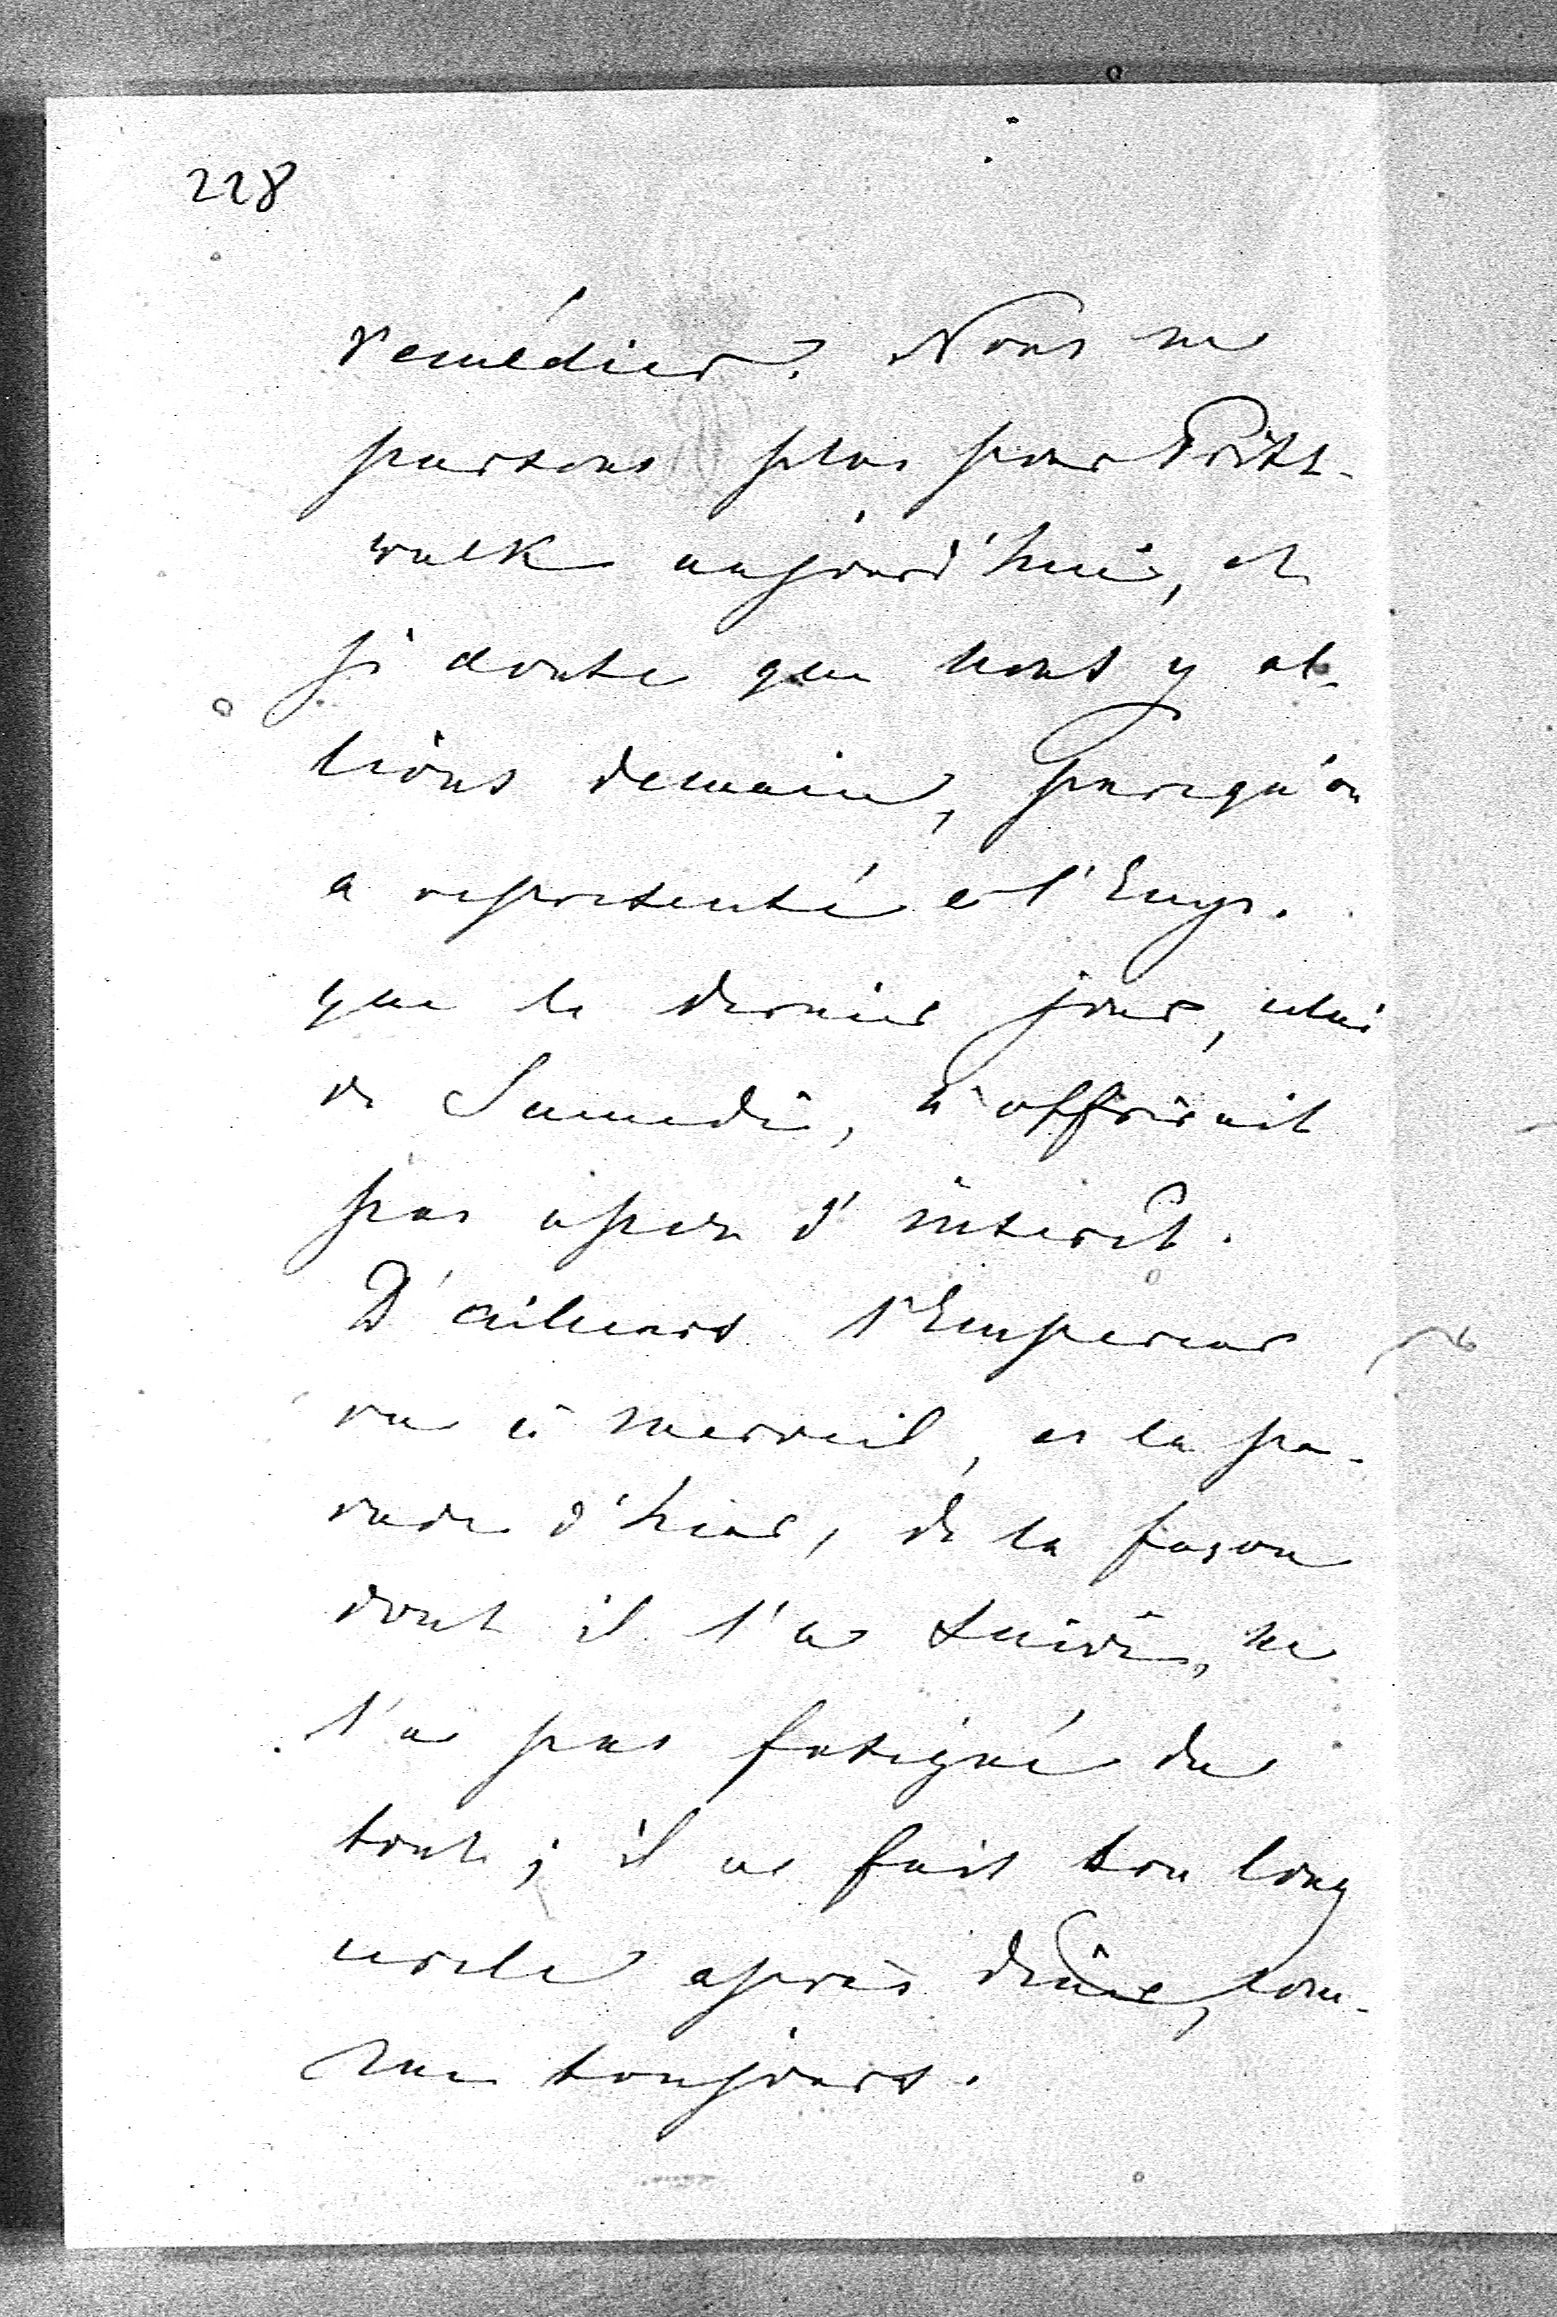 228
remédier. Nous ne
partons plus pour Pritz-
walk aujourd'hui, et
je doute que nous y al-
lions demain, parcequ'on
a représenté à l'Emp.
que le dernier jour, celui
de Samedi, n'offrirait
pas assez d'intérêt.
D'ailleurs l'Empereur
va à merveil, et la pa-
rade d'hier, de la façon
dont il l'a suivie, ne
l'a pas fatigué du
tout; il a fait son long
cercle après dîner, com-
me toujours.